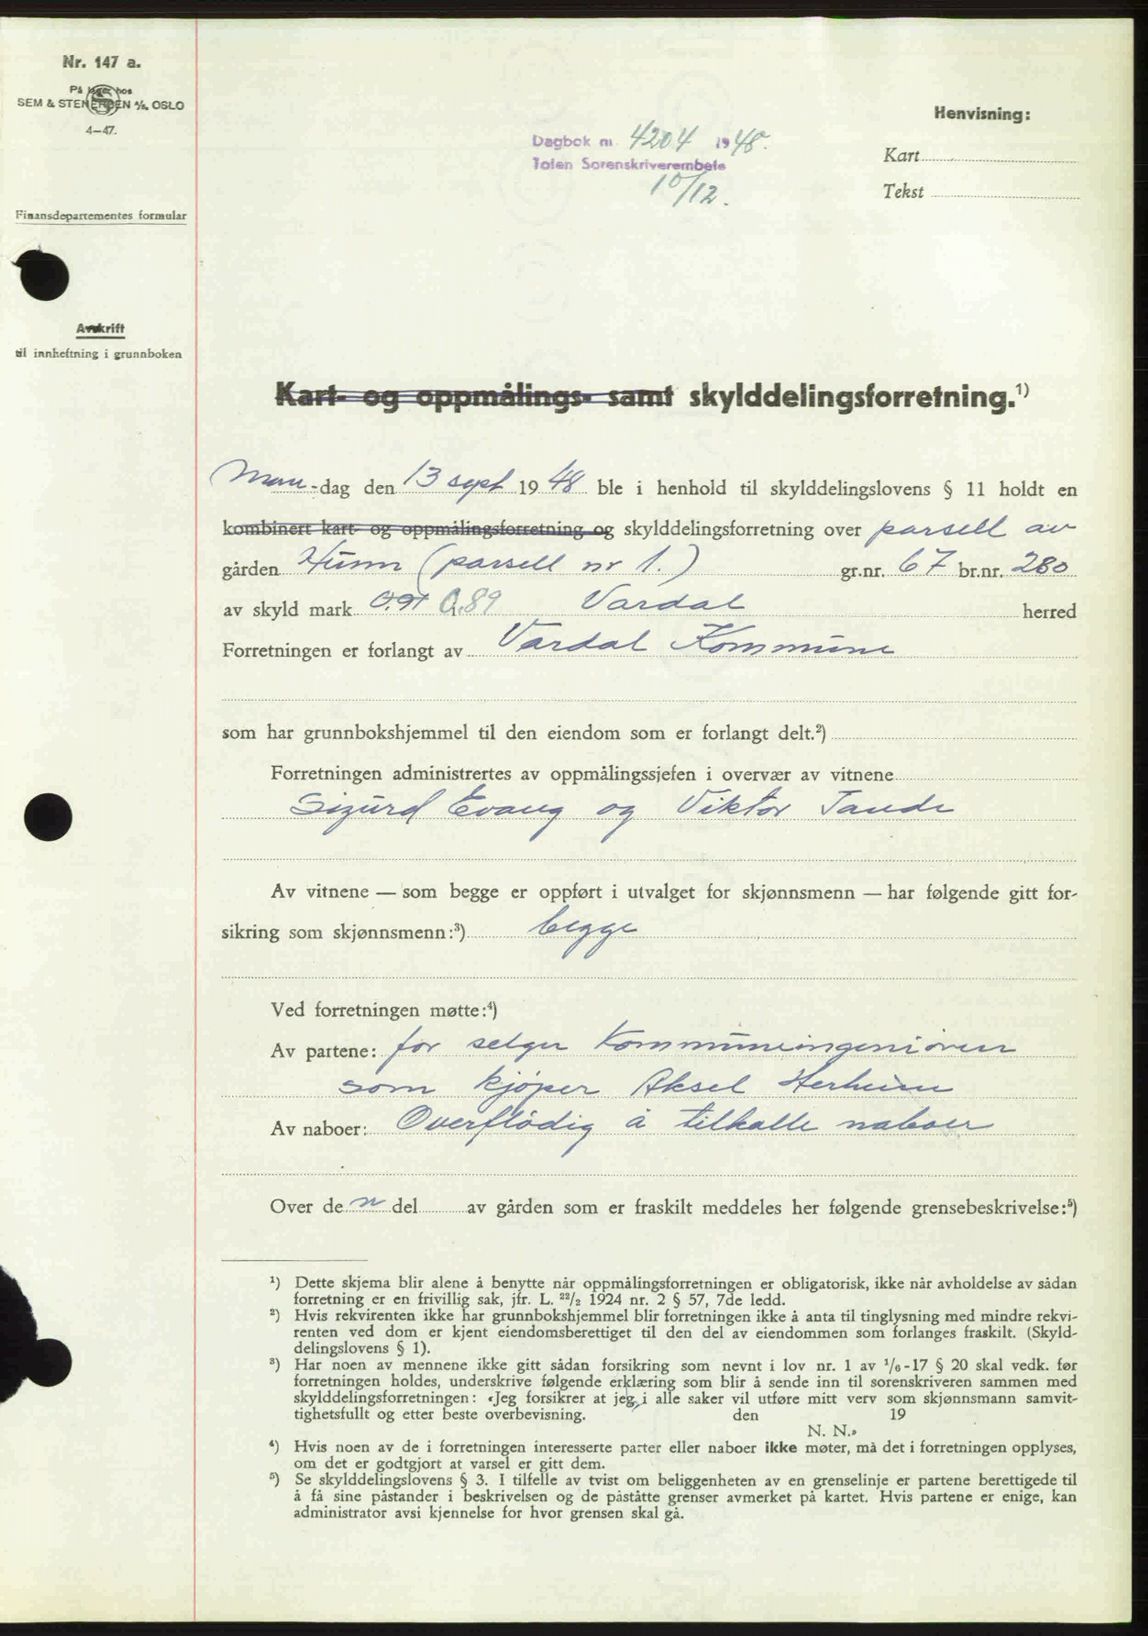 Nr. 147 a.
På lager hos
SEM & STENERSEN A/S. OSLO
4—47.
Finansdepartementes formular
Avskrift
til innheftning i grunnboken
Dagbok nr. 4204 1948.
Toten Sorenskriverembete
10/12.
Henvisning:
Kart
Tekst
Kart- og oppmålings- samt skylddelingsforretning.¹)
Man-dag den 13 sept 1948 ble i henhold til skylddelingslovens § 11 holdt en
kombinert kart- og oppmålingsforretning og skylddelingsforretning over parsell av
gården Hunn (parsell nr 1.) gr.nr. 67 br.nr. 280
av skyld mark 0.91 0.89 Vardal herred
Forretningen er forlangt av Vardal Kommune
som har grunnbokshjemmel til den eiendom som er forlangt delt.²)
Forretningen administrertes av oppmålingssjefen i overvær av vitnene
Sigurd Evang og Viktor Tande
Av vitnene — som begge er oppført i utvalget for skjønnsmenn — har følgende gitt for-
sikring som skjønnsmenn:³) begge
Ved forretningen møtte:⁴)
Av partene: for selger Kommuneingeniøren
som kjøper Aksel Herheim
Av naboer: Overflødig å tilkalle naboer
Over den del av gården som er fraskilt meddeles her følgende grensebeskrivelse:⁵)
¹) Dette skjema blir alene å benytte når oppmålingsforretningen er obligatorisk, ikke når avholdelse av sådan
forretning er en frivillig sak, jfr. L. 22/2 1924 nr. 2 § 57, 7de ledd.
²) Hvis rekvirenten ikke har grunnbokshjemmel blir forretningen ikke å anta til tinglysning med mindre rekvi-
renten ved dom er kjent eiendomsberettiget til den del av eiendommen som forlanges fraskilt. (Skyld-
delingslovens § 1).
³) Har noen av mennene ikke gitt sådan forsikring som nevnt i lov nr. 1 av 1/6-17 § 20 skal vedk. før
forretningen holdes, underskrive følgende erklæring som blir å sende inn til sorenskriveren sammen med
skylddelingsforretningen: «Jeg forsikrer at jeg i alle saker vil utføre mitt verv som skjønnsmann samvit-
tighetsfullt og etter beste overbevisning. den 19
N. N.»
⁴) Hvis noen av de i forretningen interesserte parter eller naboer ikke møter, må det i forretningen opplyses,
om det er godtgjort at varsel er gitt dem.
⁵) Se skylddelingslovens § 3. I tilfelle av tvist om beliggenheten av en grenselinje er partene berettigede til
å få sine påstander i beskrivelsen og de påståtte grenser avmerket på kartet. Hvis partene er enige, kan
administrator avsi kjennelse for hvor grensen skal gå.